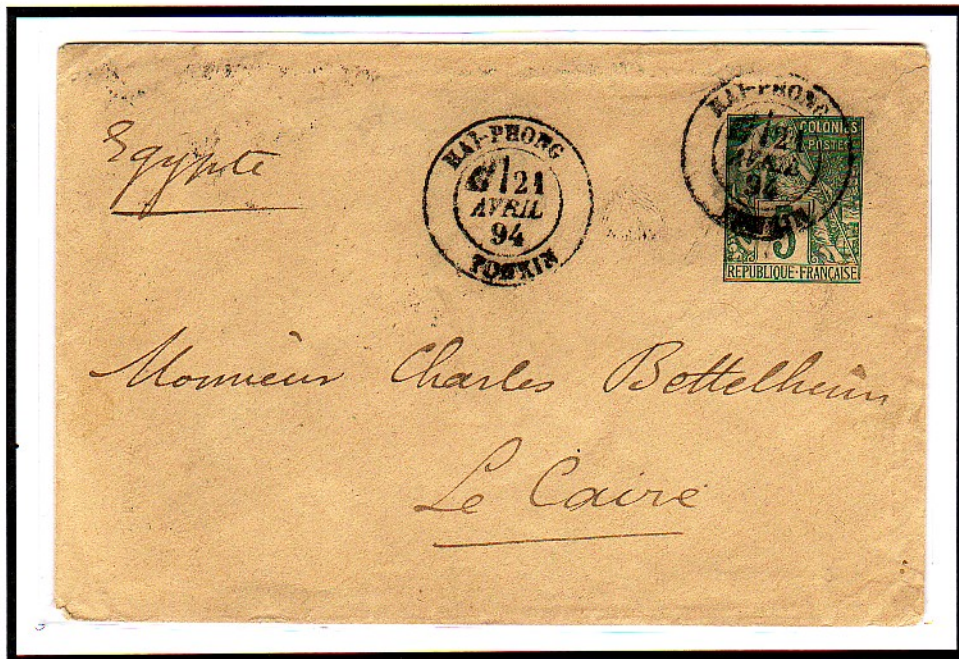 Egypte
HAÏ-PHONG
21
AVRIL
94
TONKIN
HAÏ-PHONG
21
AVRIL
94
TONKIN
COLONIES
POSTES
5
REPUBLIQUE FRANÇAISE
Monsieur Charles Bettelheim
Le Caire